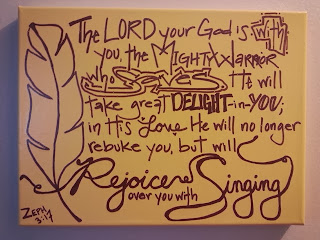 The LORD your God is with
you, the Mighty Warrior
who Saves. He will
take great DELIGHT in YOU;
in His Love He will no longer
rebuke you, but will
Rejoice
over you with Singing
ZEPH
3:17